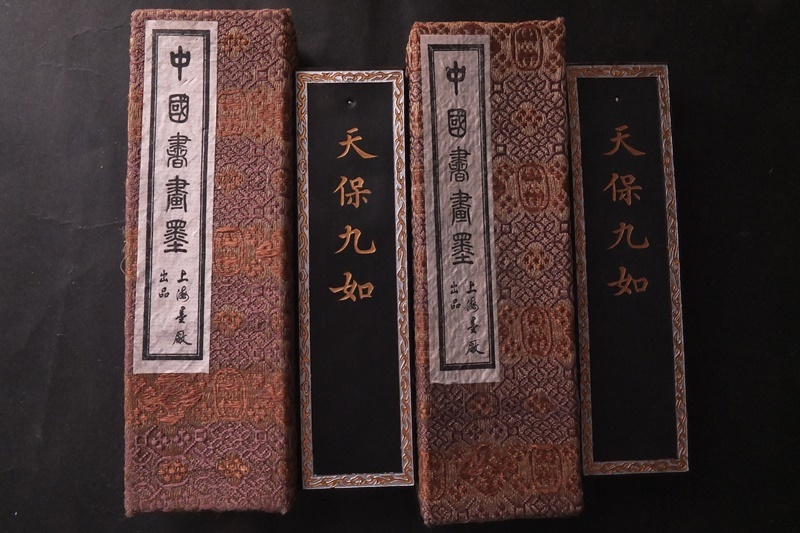 中國書畫墨
上海墨厰
出品
天保九如
中國書畫墨
上海墨厰
出品
天保九如